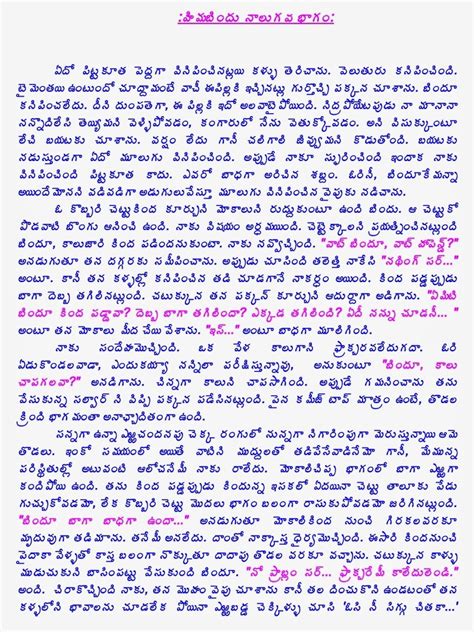 :హిమబిందు నాలుగవ భాగం:
ఏదో పిట్టకూత పెద్దగా వినిపించినట్లయి కళ్ళు తెరిచాను. వెలుతురు కనిపించింది.
టైమెంతయి ఉంటుందో చూద్దామంటే వాచీ ఈపిల్లకి ఇచ్చినట్లు గుర్తొచ్చి పక్కన చూశాను. బిందూ
కనిపించలేదు. దీని దుంపతెగా, ఈ పిల్లకి ఇదో అలవాటైపోయింది. నిద్రపోయేటపుడు నా మానానా
నన్నొదిలేసి తెయ్యమని వెళ్ళిపోవడం, కంగారులో నేను వెతుక్కోవడం. అని విసుక్కుంటూ
లేచి బయటకు చూశాను. వర్షం లేదు గానీ చలిగాలి జివ్వుమని కొడుతోంది. బయటకు
నడుస్తుండగా ఏదో మూలుగు వినిపించింది. అప్పుడే నాకు స్ఫురించింది ఇందాక నాకు
వినిపించింది పిట్టకూత కాదు. ఎవరో బాధగా అరిచిన శబ్దం. ఓరినీ, బిందూకేమన్నా
అయిందేమోనని వడివడిగా అడుగులువేస్తూ మూలుగు వినిపించిన వైపుకు నడిచాను.
ఓ కొబ్బరి చెట్టుకింద కూర్చుని మోకాలుని రుద్దుకుంటూ ఉంది బిందు. ఆ చెట్టుకో
పొడవాటి బొంగు ఆనించి ఉంది. నాకు విషయం అర్ధమయ్యింది. చెట్టెక్కాలని ప్రయత్నించినట్లుంది
బిందూ, కాలుజారి కింద పడిందనుకుంటా. నాకు నవ్వొచ్చింది. "వాట్ బిందూ, వాట్ హాపెన్డ్?"
అడుగుతూ తన దగ్గరకు సమీపించాను. అప్పుడు చూసింది తలెత్తి నాకేసి "నథింగ్ సర్..."
అంటూ. కానీ తన కళ్ళల్లో కనిపించిన తడి చూడగానే నాకర్థం అయింది. కింద పడ్డప్పుడు
బాగా దెబ్బ తగిలినట్లుంది. చటుక్కున తన పక్కన్ కూర్చుని ఆదుర్దాగా అడిగాను. "ఏమిటి
బిందూ కింద పడ్డావా? దెబ్బ బాగా తగిలిందా? ఎక్కడ తగిలింది? ఏదీ నన్ను చూడనీ... "
అంటూ తన మోకాలు మీద చేయి వేశాను. "ఇస్..." అంటూ బాధగా మూలిగింది.
నాకు సందేహమొచ్చింది. ఒక వేళ కాలుగాని ఫ్రాక్చరవలేదుగదా. ఓరి
ఏడుకొండలవాడా, ఎందుకయ్యా నన్నిలా పరీక్షిస్తున్నావు, అనుకుంటూ "బిందూ, కాలు
చాపగలవా?" అనడిగాను. చిన్నగా కాలు చాపసాగింది. అప్పుడే గమనించాను తను
వేసుకున్న సల్వార్ ని విప్పి పక్కన పడేసినట్లుంది. పైన కమీజ్ టాప్ మాత్రం ఉంటే, తొడల
క్రింది భాగమంతా అనాచ్ఛాదితంగా ఉంది.
సన్నగా ఉన్నా ఎఱ్ఱచందనపు చెక్క రంగులో నున్నగా నిగారింపుగా మెరుస్తున్నాయి ఆమె
తొడలు. ఇంకో సమయంలో అయితే వాటిని ముద్దులతో తడిపేసేవాడినేమో గానీ, మేమున్న
పరిస్థితుల్లో అటువంటి ఆలోచనేమీ నాకు రాలేదు. మోకాలిచిప్ప భాగంలో బాగా ఎఱ్ఱగా
కందిపోయి ఉంది. తను కింద పడ్డప్పుడు కిందున్న ఇసకలో ఏదయినా చెట్టు తాలూకు పేడు
గుచ్చుకోవడమో, లేక కొబ్బరి చెట్టు మొదలు భాగం బలంగా రాసుకుపోవడమో జరిగినట్లుంది.
"బిందూ బాగా బాధగా ఉందా..." అనడుగుతూ మోకాలికింద నుంచి గిరకలవరకూ
మృదువుగా తడిమాను. తనేమీ అనలేదు. దాంతో నాక్కాస్త ధైర్యమొచ్చింది. ఈసారి కిందనుంచి
పైదాకా వేళ్ళతో కాస్త బలంగా నొక్కుతూ దాదాపు తొడల వరకూ వచ్చాను. చటుక్కున కాళ్ళు
ముడుచుకుని బాసింపట్టు వేసుకు కూర్చుంది బిందూ. "నో ప్రాబ్లం సర్... ఫ్రాక్చరేమీ కాలేదులెండి."
అంది. చిరాకొచ్చింది నాకు, తన మొహం వైపు చూశాను కానీ తల దించుకుని ఉండటంతో తన
కళ్ళలోని భావాలను చూడలేక పోయినా ఎఱ్ఱబడ్డ చెక్కిళ్ళు చూసి 'ఓసి నీ సిగ్గు చితకా..'